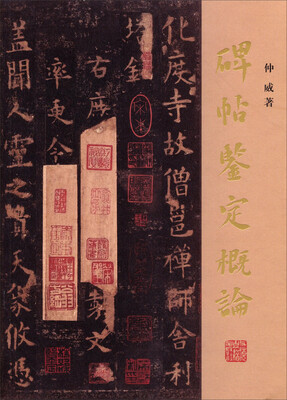 仲威著
碑帖鑒定概論
化度寺故僧邕禪師舍利
塔銘
右庶 製文
率更令
蓋聞人靈之貴天象攸憑